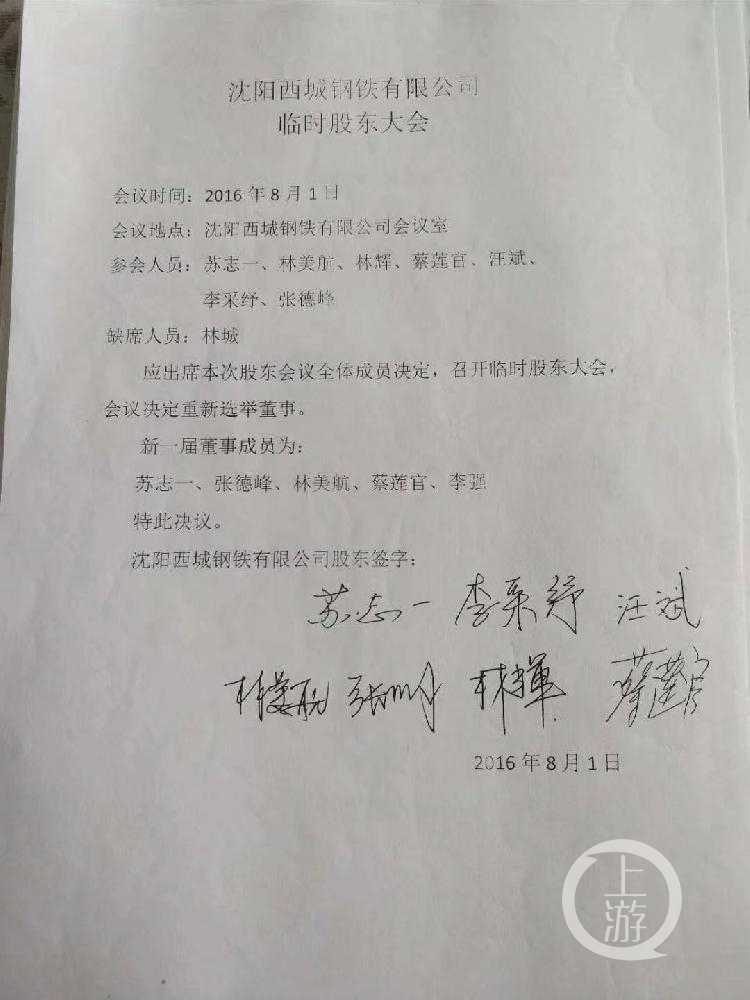 沈阳西城钢铁有限公司
临时股东大会
会议时间：2016年8月1日
会议地点：沈阳西城钢铁有限公司会议室
参会人员：苏志一、林美航、林辉、蔡莲官、汪斌、
李采纾、张德峰
缺席人员：林城
应出席本次股东会议全体成员决定，召开临时股东大会，
会议决定重新选举董事。
新一届董事成员为：
苏志一、张德峰、林美航、蔡莲官、李强
特此决议。
沈阳西城钢铁有限公司股东签字：
苏志一 李采纾 汪斌
林美航 林輝 蔡莲官
2016年8月1日
上游